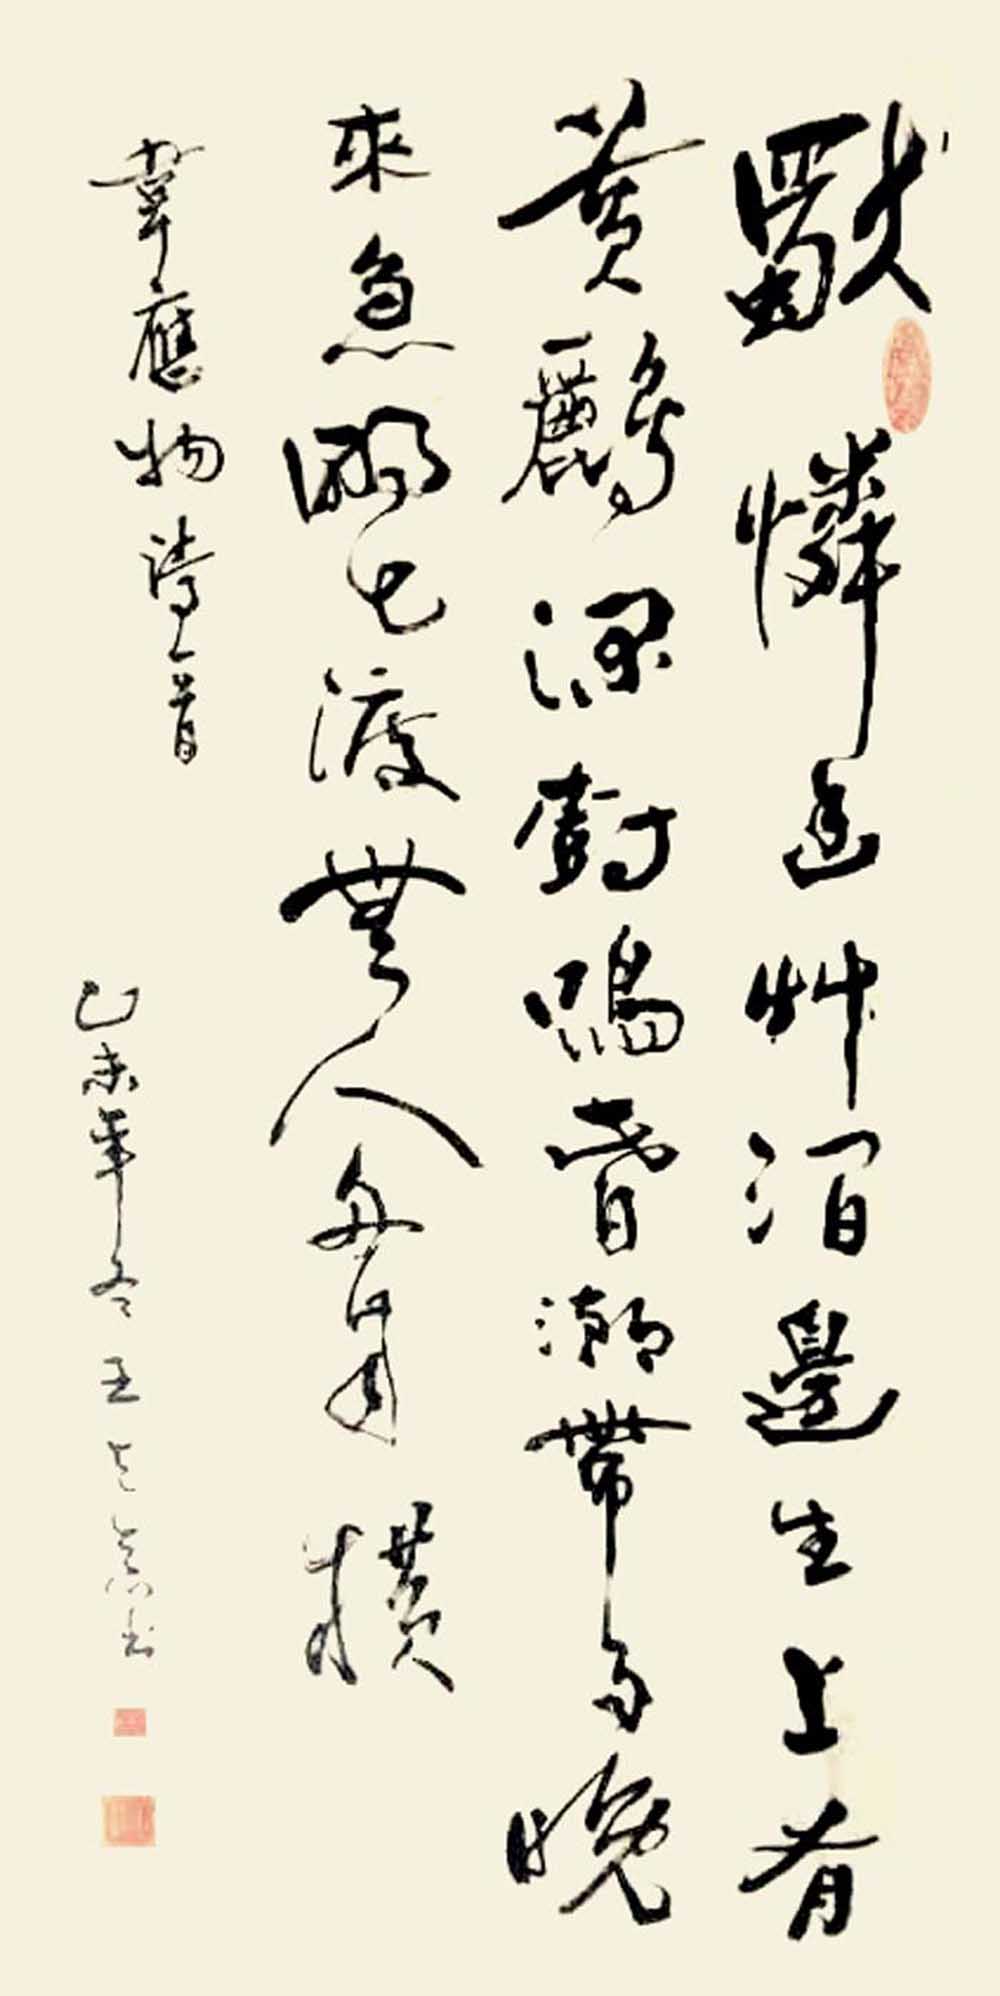 獨憐幽艸澗邊生上有
黃鸝深樹鳴春潮帶雨晚
來急野渡無人舟自橫
韋應物詩一首
己未年冬王書